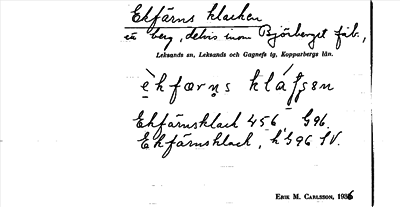 Ekfärns klacken
ett berg, delvis inom Björberget fäb.,
Leksands sn, Leksands och Gagnefs tg, Kopparbergs län.
èkfærns klássen
Ekfärnsklack 456 G96.
Ekfärnsklack, h G96 SV.
ERIK M. CARLSSON, 1936